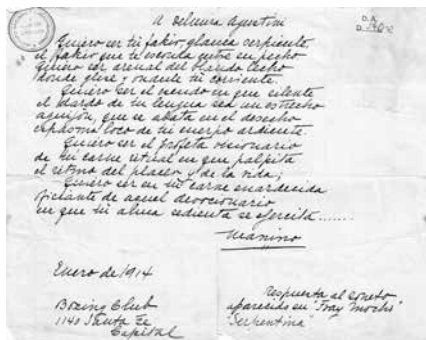 A Delmira Agustini
D. A.
D.
Quiero ser tu fakir, glauca serpiente,
el fakir que te esconda entre su pecho
quiero ser arenal del blando lecho
donde glise y ondante tu corriente.
Quiero ser el escudo en que silente
el dardo de tu lengua sea un estrecho
aguijón, que se abata en el deshecho
espasmo loco de tu cuerpo ardiente.
Quiero ser el profeta visionario
de tu carne ritual en que palpita
el ritmo del placer y de la vida;
Quiero ser en tu carne enardecida
oficiante de aquel devocionario
en que tu alma sedienta se ejercita......
Manino
Enero de 1914
Boxing Club
1140 Santa Fe
Capital
respuesta al soneto
aparecido en "Fray Mocho"
"Serpentina"